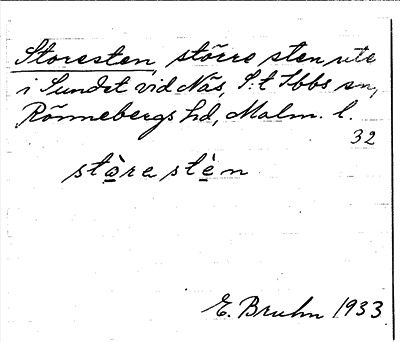 Storesten, större sten ute
i Sundet vid Nås, S:t Ibbs sn,
Rönnebergs hd, Malm. l.
32
stòre stèn
E. Bruhn 1933